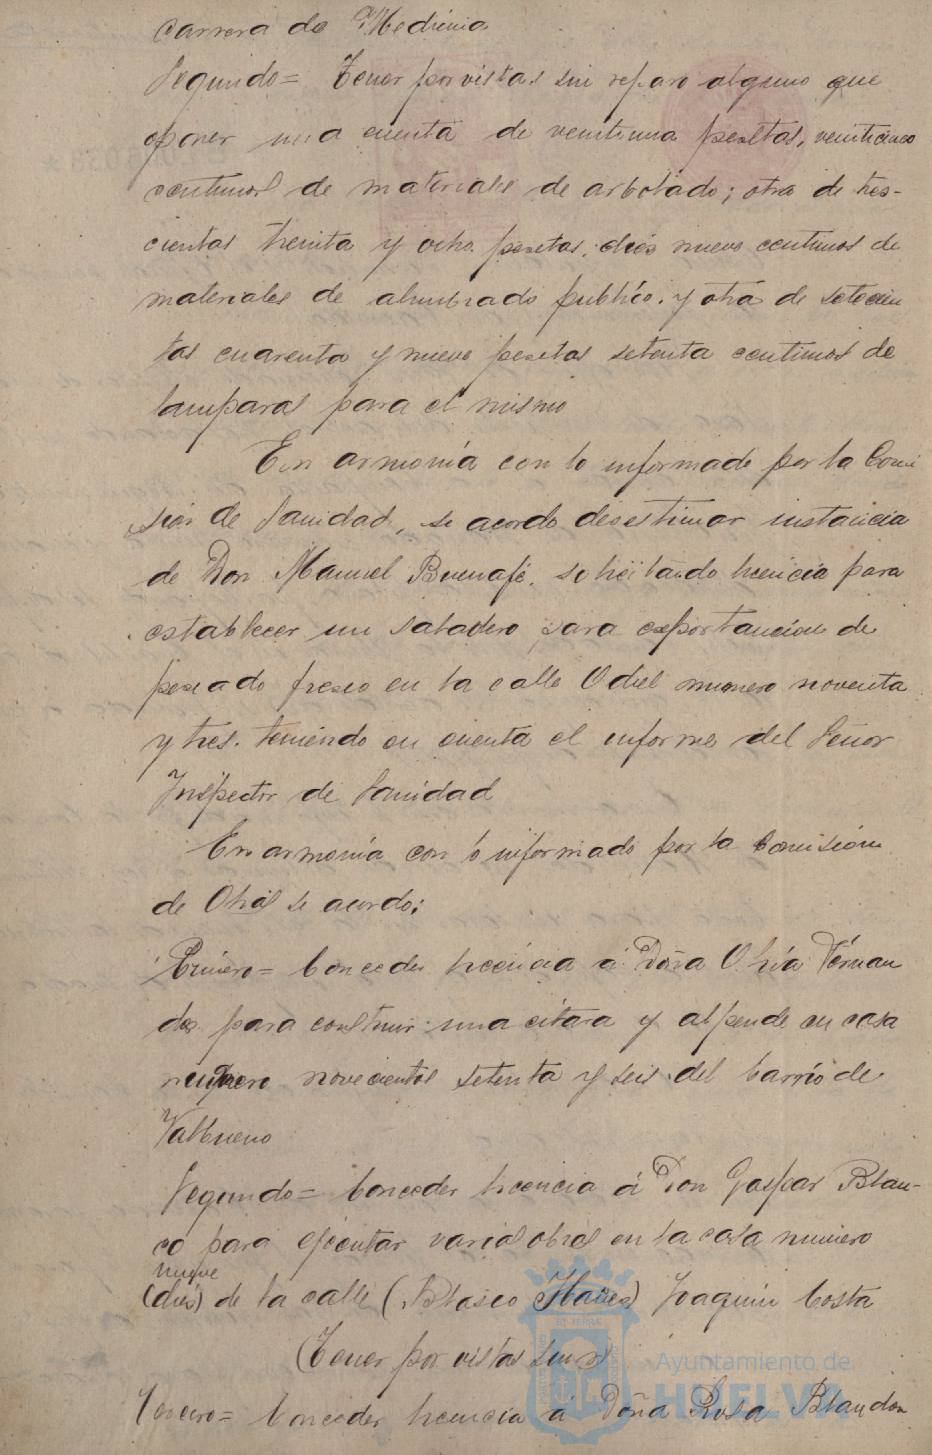 carrera de Medicina
Segundo= Tener por vistas sin reparo alguno que
oponer una cuenta de veintiuna pesetas, veinticinco
centimos de materiales de arbolado; otra de tres-
cientas treinta y ocho pesetas, diez nueve centimos de
materiales de alumbrado publico. y otra de setecien
tas cuarenta y nueve pesetas setenta centimos de
lamparas para el mismo
En armonía con lo informado por la Comi
sion de Sanidad, se acordo desestimar instancia
de Don Manuel Buenafé, solicitando licencia para
establecer un saladero para exportancion de
pescado fresco en la calle Odiel numero noventa
y tres. teniendo en cuenta el informe del Señor
Inspector de Sanidad
En armonía con lo informado por la Comisión
de Obras se acordo:
Primero= Conceder licencia á Doña Fernan
dez para construir una citara y alpende en casa
numero novecientos setenta y seis del barrio de
Valbueno
Segundo= Conceder licencia á Don Gaspar Blan-
co para ejecutar varias obras en la casa numero
nueve
(diez) de la calle (Blasco Ibañez) Joaquin Costa
(Tener por vistas sin r)
Tercero= Conceder licencia á Doña Rosa Blandon
Ayuntamiento de
HUELVA